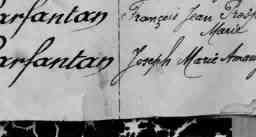 arfantan François Jean Prosp
Marie
arfantan Joseph Marie Aman